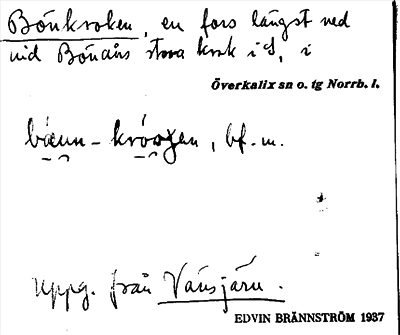 Bönkroken, en fors längst ned
vid Bönåns stora krok i S, i
Överkalix sn o. tg Norrb. l.
bäunn-króoʒen, bf. m.
Uppg. från Vänsjärv.
EDVIN BRÄNNSTRÖM 1937